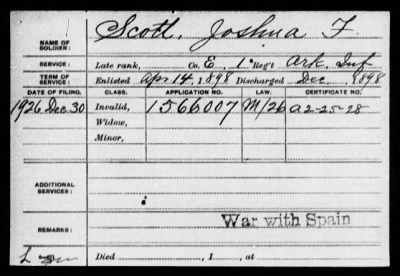 NAME OF SOLDIER: Scott, Joshua F.
SERVICE: Late rank, Co. E, 1" Reg't Ark. Inf
TERM OF SERVICE: Enlisted Apr 14, 1898 Discharged Dec , 1898
DATE OF FILING. CLASS. APPLICATION NO. LAW. CERTIFICATE NO.
1926 Dec 30 Invalid, 1566007 M/26 a2-25-28
Widow,
Minor,
ADDITIONAL SERVICES:
War with Spain
REMARKS:
Died , 1 , at